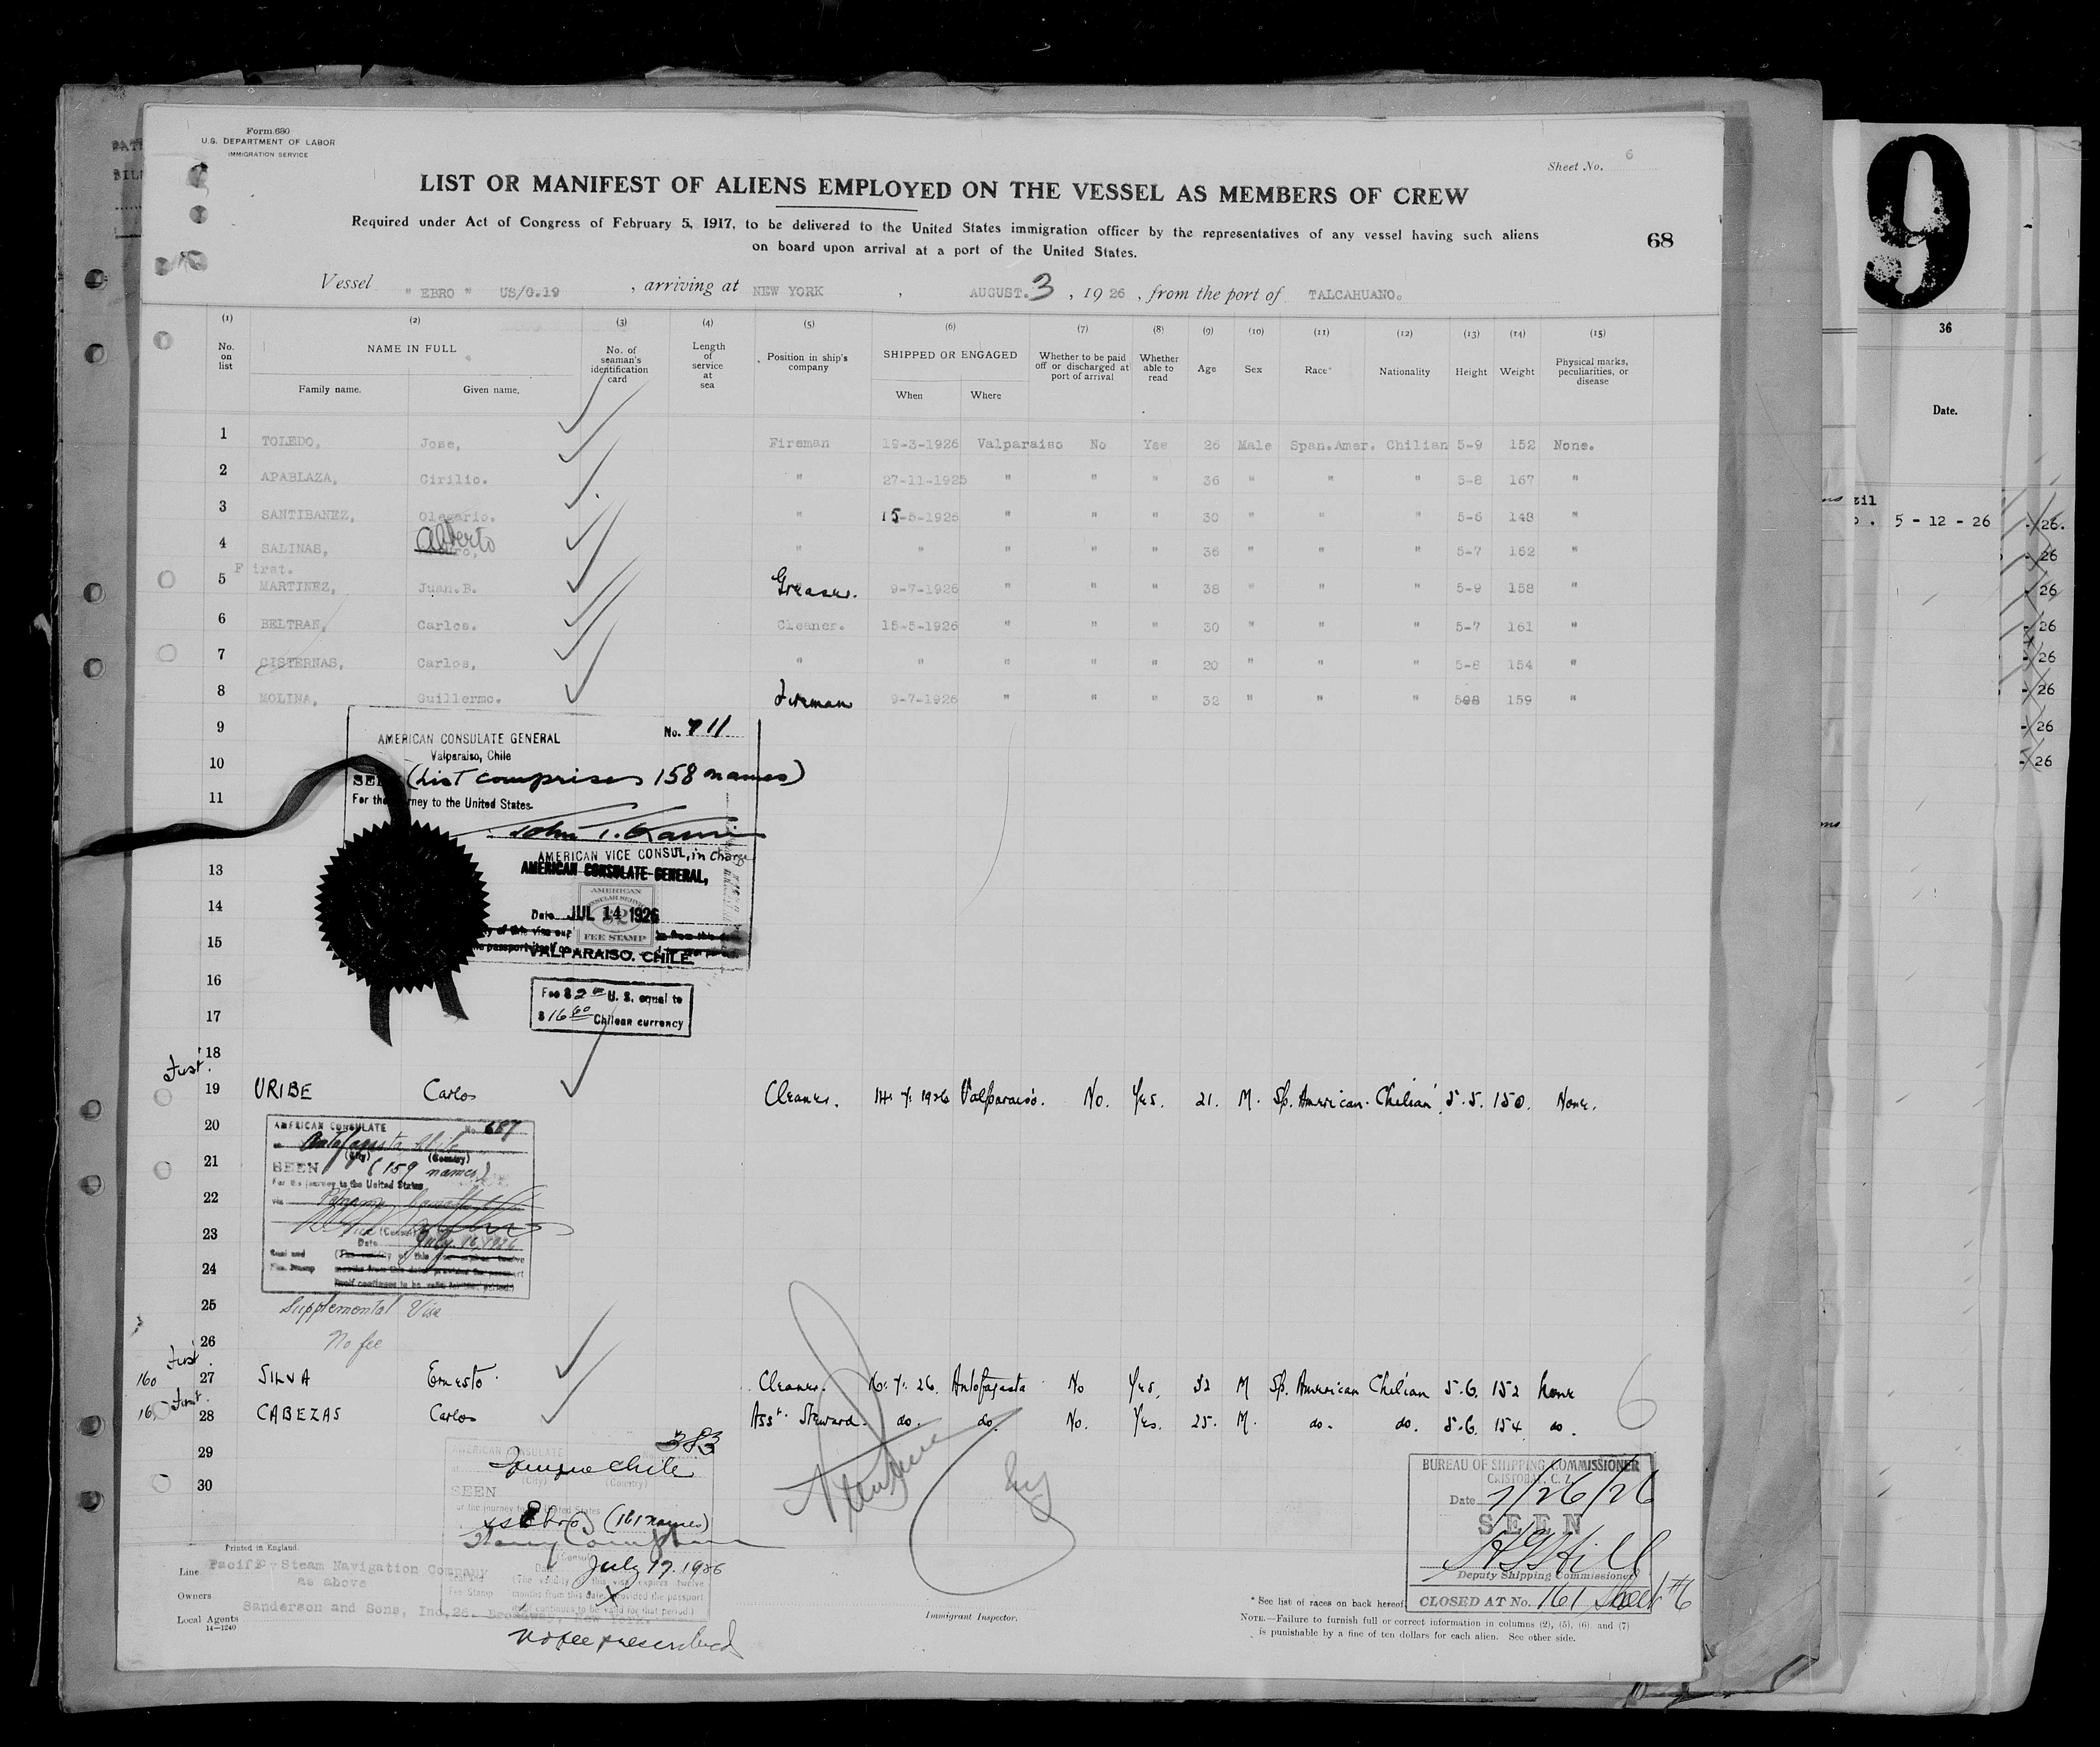 Form 680
U.S. DEPARTMENT OF LABOR
IMMIGRATION SERVICE
Sheet No. 6
LIST OR MANIFEST OF ALIENS EMPLOYED ON THE VESSEL AS MEMBERS OF CREW
Required under Act of Congress of February 5, 1917, to be delivered to the United States immigration officer by the representatives of any vessel having such aliens
on board upon arrival at a port of the United States.
68
Vessel " EBRO " US/G.19 , arriving at NEW YORK , AUGUST. 3 , 1926 , from the port of TALCAHUANO.
(1) (2) (3) (4) (5) (6) (7) (8) (9) (10) (11) (12) (13) (14) (15)
No. on list NAME IN FULL Family name. Given name. No. of seaman's identification card Length of service at sea Position in ship's company SHIPPED OR ENGAGED When Where Whether to be paid off or discharged at port of arrival Whether able to read Age Sex Race* Nationality Height Weight Physical marks, peculiarities, or disease
1 TOLEDO, Jose, Fireman 19-3-1926 Valparaiso No Yes 26 Male Span.Amer. Chilian 5-9 152 None.
2 APABLAZA, Cirilio. " 27-11-1925 " " " 36 " " " 5-8 167 "
3 SANTIBANEZ, Olegario. " 15-5-1926 " " " 30 " " " 5-6 148 "
4 SALINAS, Alberto " " " " " 36 " " " 5-7 162 "
First.
5 MARTINEZ, Juan.B. Greaser. 9-7-1926 " " " 38 " " " 5-9 158 "
6 BELTRAN, Carlos. Cleaner. 15-5-1926 " " " 30 " " " 5-7 161 "
7 CISTERNAS, Carlos, " " " " " 20 " " " 5-8 154 "
8 MOLINA, Guillermo. Fireman 9-7-1926 " " " 32 " " " 508 159 "
9
10
11
13
14
15
16
17
18
AMERICAN CONSULATE GENERAL No. 711
Valparaiso, Chile
SEEN (List comprises 158 names)
For the journey to the United States.
AMERICAN VICE CONSUL, in charge
AMERICAN CONSULATE GENERAL,
AMERICAN
CONSULAR SERVICE
Date JUL 14 1926
FEE STAMP
VALPARAISO. CHILE
Fee $2 U. S. equal to
$16 60 Chilean currency
First.
19 URIBE Carlos Cleaner. 14. 7. 1926 Valparaiso. No. Yes. 21. M. Sp. American. Chilian. 5.5. 150. None.
20
21
22
23
24
25
26
AMERICAN CONSULATE No. 687
Antofagasta Chile
(City) (Country)
SEEN (159 names)
For the journey to the United States
via Panama
Date July 16, 1926
Supplemental Visa
No fee
First.
160 27 SILVA Ernesto. Cleaner. 16. 7. 26. Antofagasta No Yes, 32 M Sp. American Chilian 5.6. 152 None
First.
161 28 CABEZAS Carlos Asst. Steward. do. do. No. Yes. 25. M. do. do. 5.6. 154 do.
29
30
6
AMERICAN CONSULATE No. 383
Iquique Chile
(City) (Country)
SEEN
For the journey to the United States
ss Ebro (161 names)
July 19. 1926
(The validity of this visa expires twelve
months from this date provided the passport
itself continues to be valid for that period.)
No fee prescribed
BUREAU OF SHIPPING COMMISSIONER
CRISTOBAL, C. Z.
Date 7/26/26
SEEN
Hill
Deputy Shipping Commissioner
CLOSED AT No. 161 Sheet #6
Printed in England.
Line Pacific Steam Navigation Company
Owners as above
Local Agents Sanderson and Sons, Inc, 26. Broadway, New York.
14—1240
Immigrant Inspector.
* See list of races on back hereof.
NOTE.—Failure to furnish full or correct information in columns (2), (5), (6), and (7)
is punishable by a fine of ten dollars for each alien. See other side.
9
36
Date.
5 - 12 - 26
- 26.
- 26
- 26
- 26
- 26
- 26
- 26
- 26